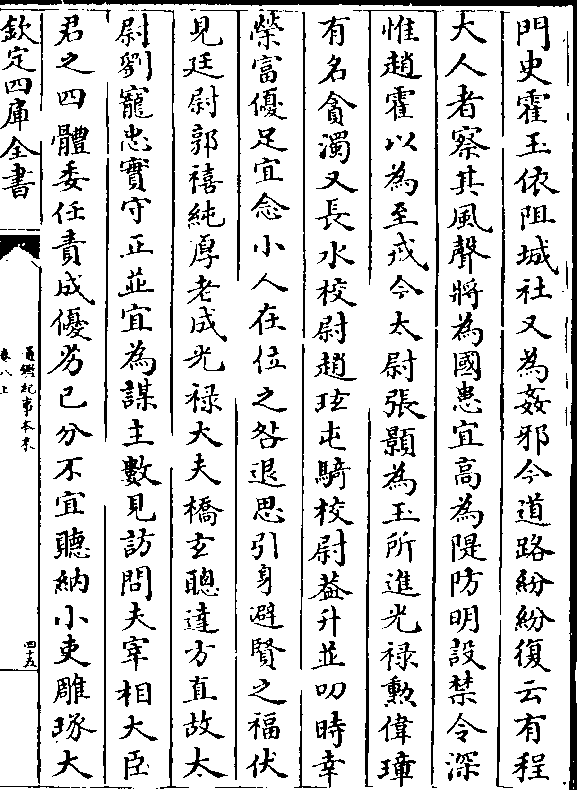 門史霍玉依阻城社又為姦邪今道路紛紛復云有程
大人者察其風聲將為國患宜高為隄防明設禁令深
惟趙霍以為至戒今太尉張顥為玉所進光祿勲偉璋
有名貪濁又長水校尉趙玹屯騎校尉葢升並叨時幸
榮富優足宜念小人在位之咎退思引身避賢之福伏
見廷尉郭禧純厚老成光禄大夫橋玄聰達方直故太
尉劉寵忠實守正並宜為謀主數見訪問夫宰相大臣
君之四體委任責成優劣已分不宜聽納小吏雕琢大
欽定四庫全書
通鑑紀事本末
卷八上
四十五